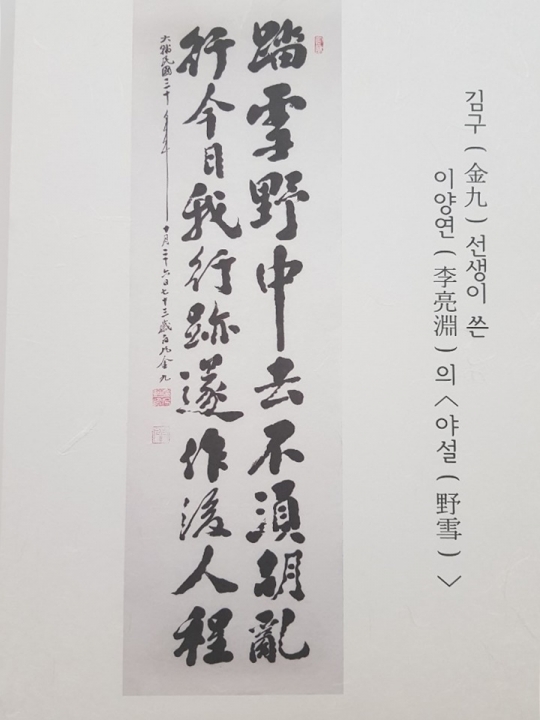 김구 ( 金九 ) 선생이 쓴
이양연 ( 李亮淵 ) 의 〈 야설 ( 野雪 ) 〉
踏雪野中去不須胡亂
行今日我行跡遂作後人程
大韓民國三十年十月二十六日七十三歲白凡金九